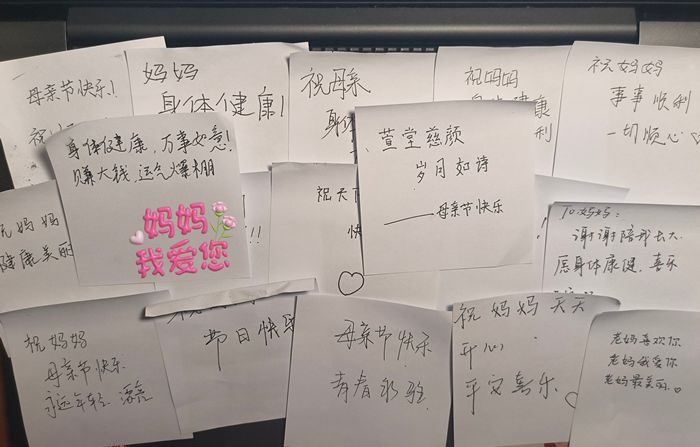 母亲节快乐!
妈妈
身体健康!
祝母亲
祝妈妈
祝妈妈
事事顺利
一切顺心
身体健康, 万事如意!
赚大钱, 运气爆棚
妈妈
我爱您
萱堂慈颜
岁月如诗
——母亲节快乐
祝天
妈妈
健康美丽
To妈妈:
谢谢陪我长大
愿身体康健, 喜乐
祝妈妈
母亲节快乐
永远年轻 漂亮
节日快乐
母亲节快乐
青春永驻
祝妈妈天天
开心
平安喜乐
老妈喜欢你
老妈我爱你
老妈最美丽